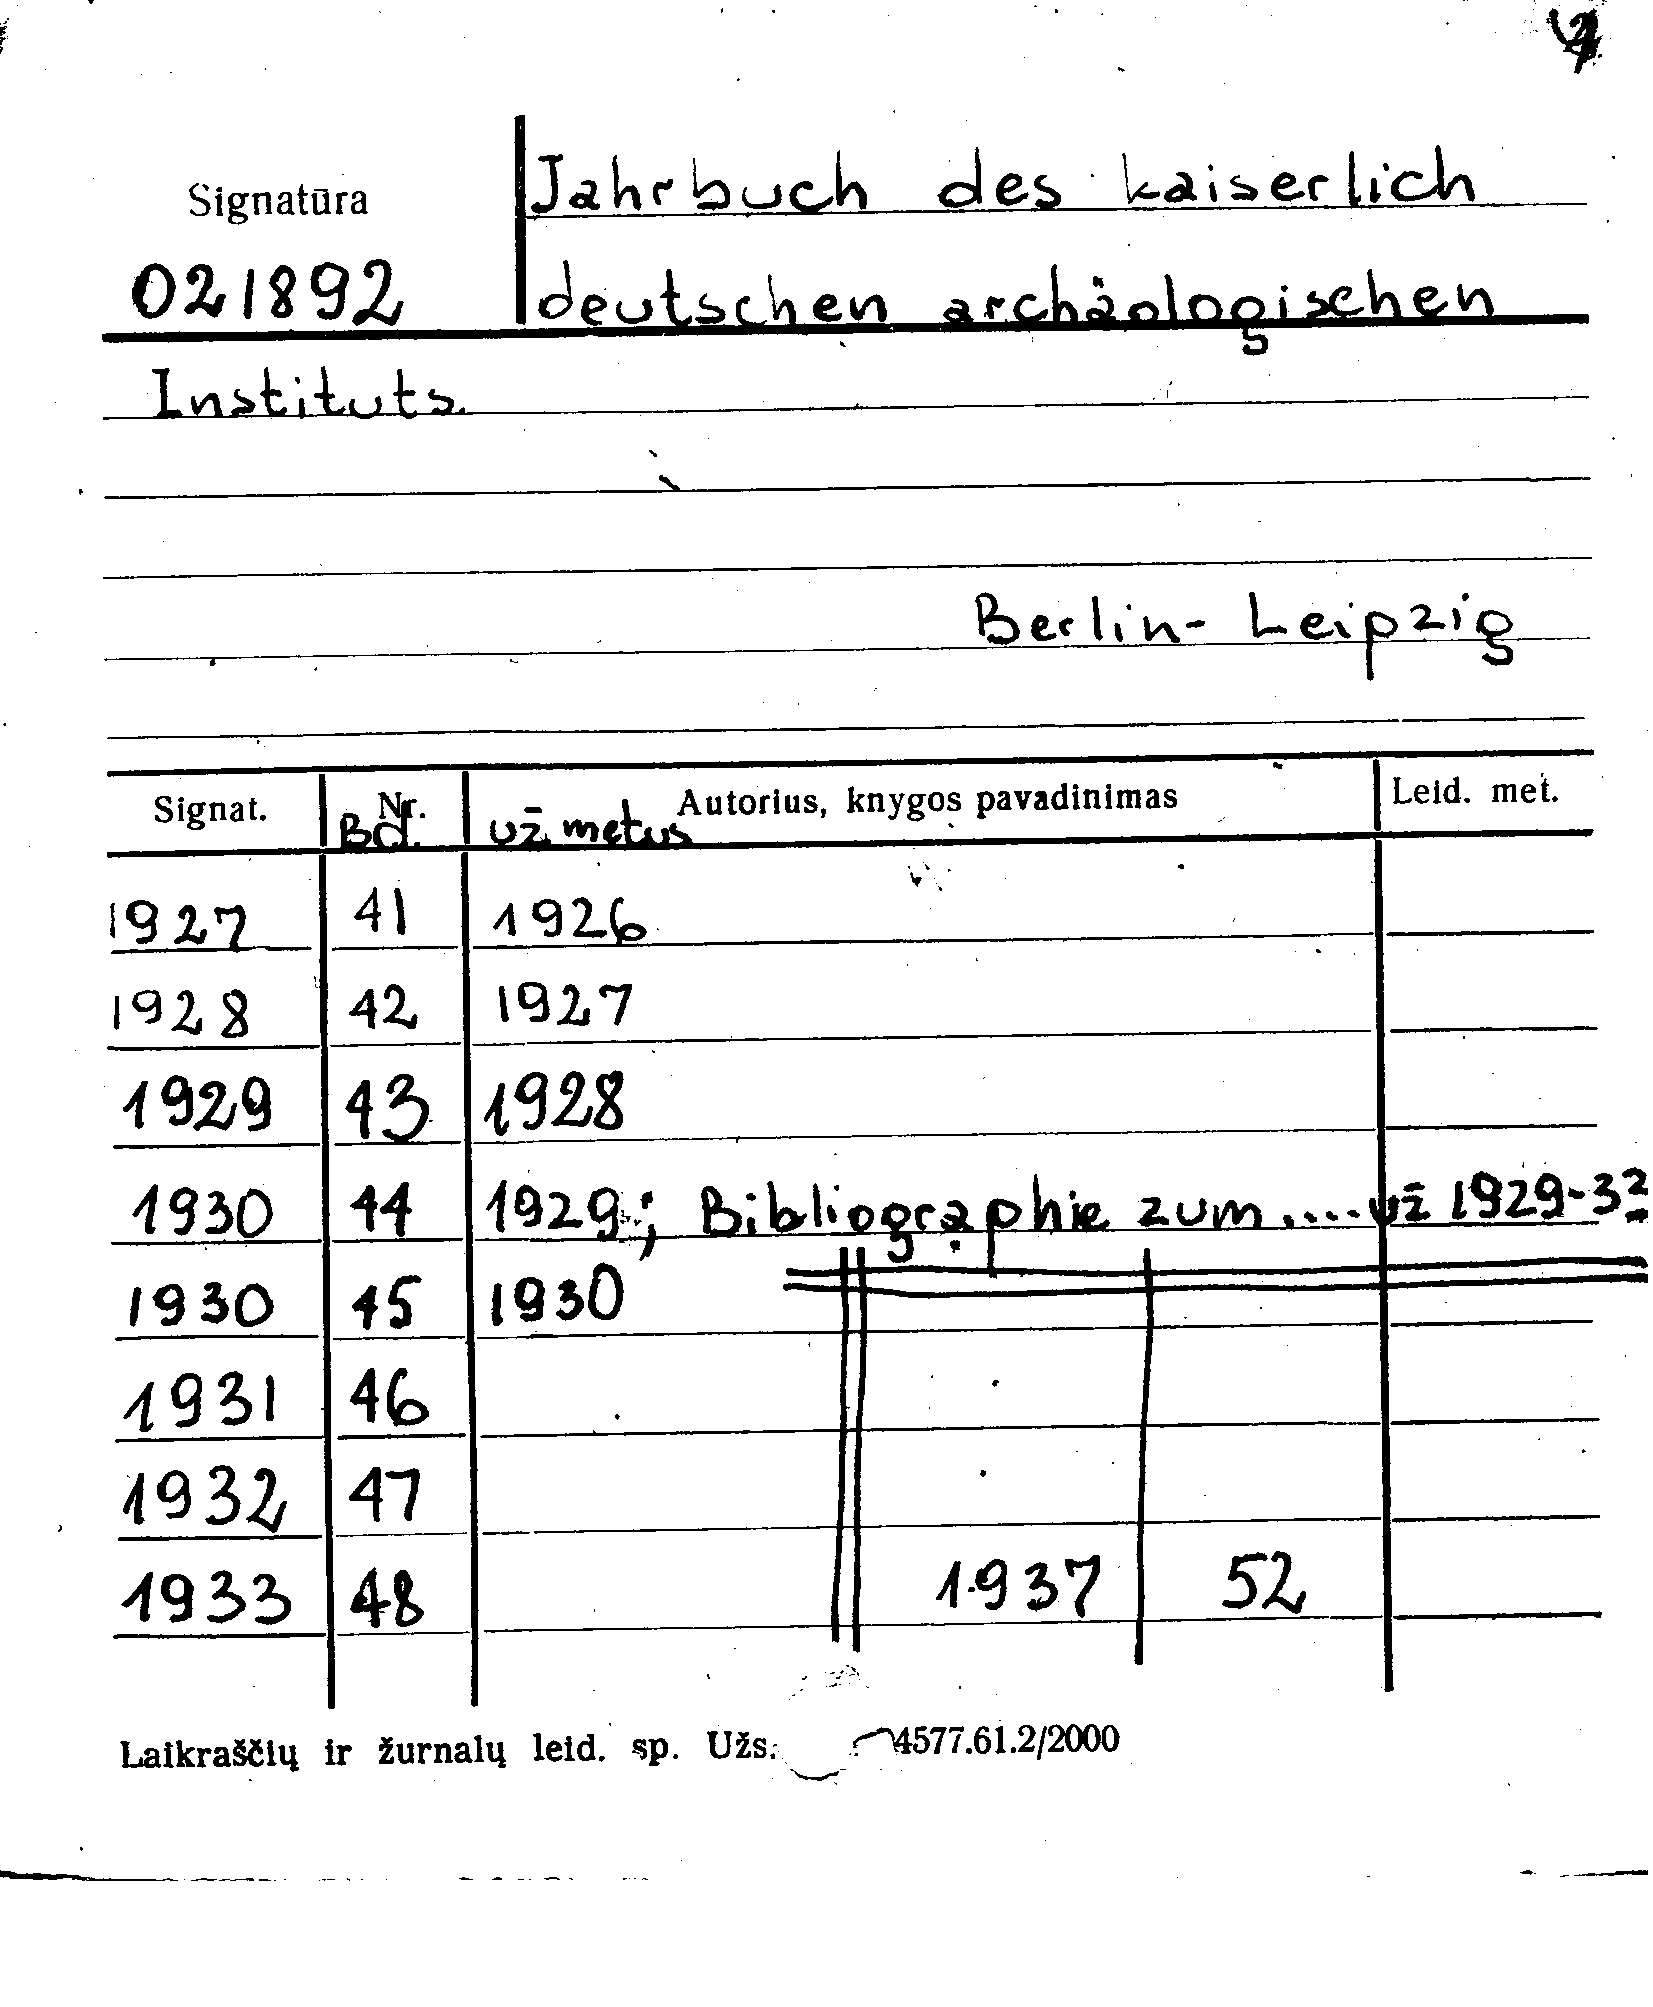 Signatūra
Jahrbuch des kaiserlich
021892
deutschen archäologischen
Instituts.
Berlin-Leipzig
Signat. Nr. Autorius, knygos pavadinimas Leid. met.
Bd. už metus
1927 41 1926
1928 42 1927
1929 43 1928
1930 44 1929; Bibliographie zum.... už 1929-32
1930 45 1930
1931 46
1932 47
1933 48 1937 52
Laikraščių ir žurnalų leid. sp. Užs. 4577.61.2/2000